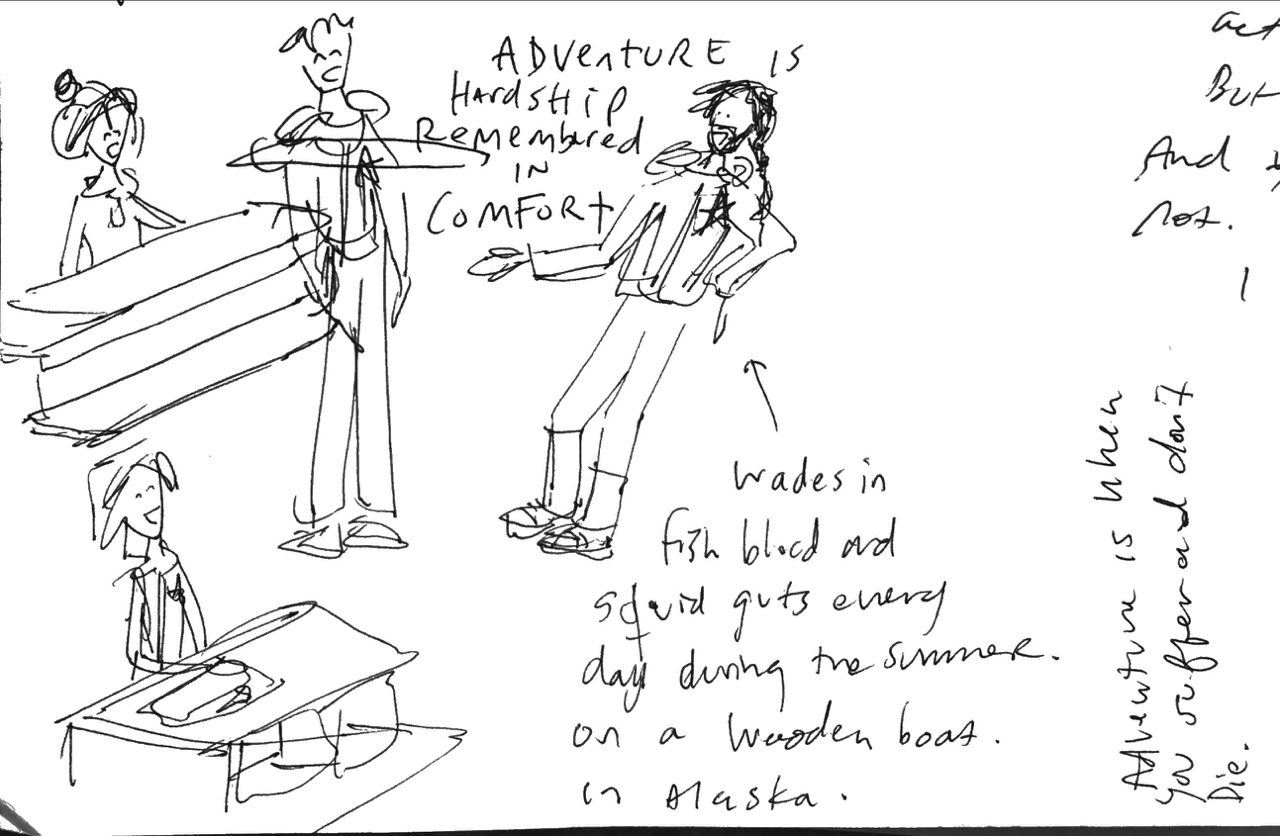 ADVENTURE IS
HARDSHIP
REMEMBERED
IN
COMFORT
wades in
fish blood and
squid guts every
day during the summer.
on a wooden boat.
in Alaska.
Adventure is when
you suffer and don't
Die.
But
And
not.
I